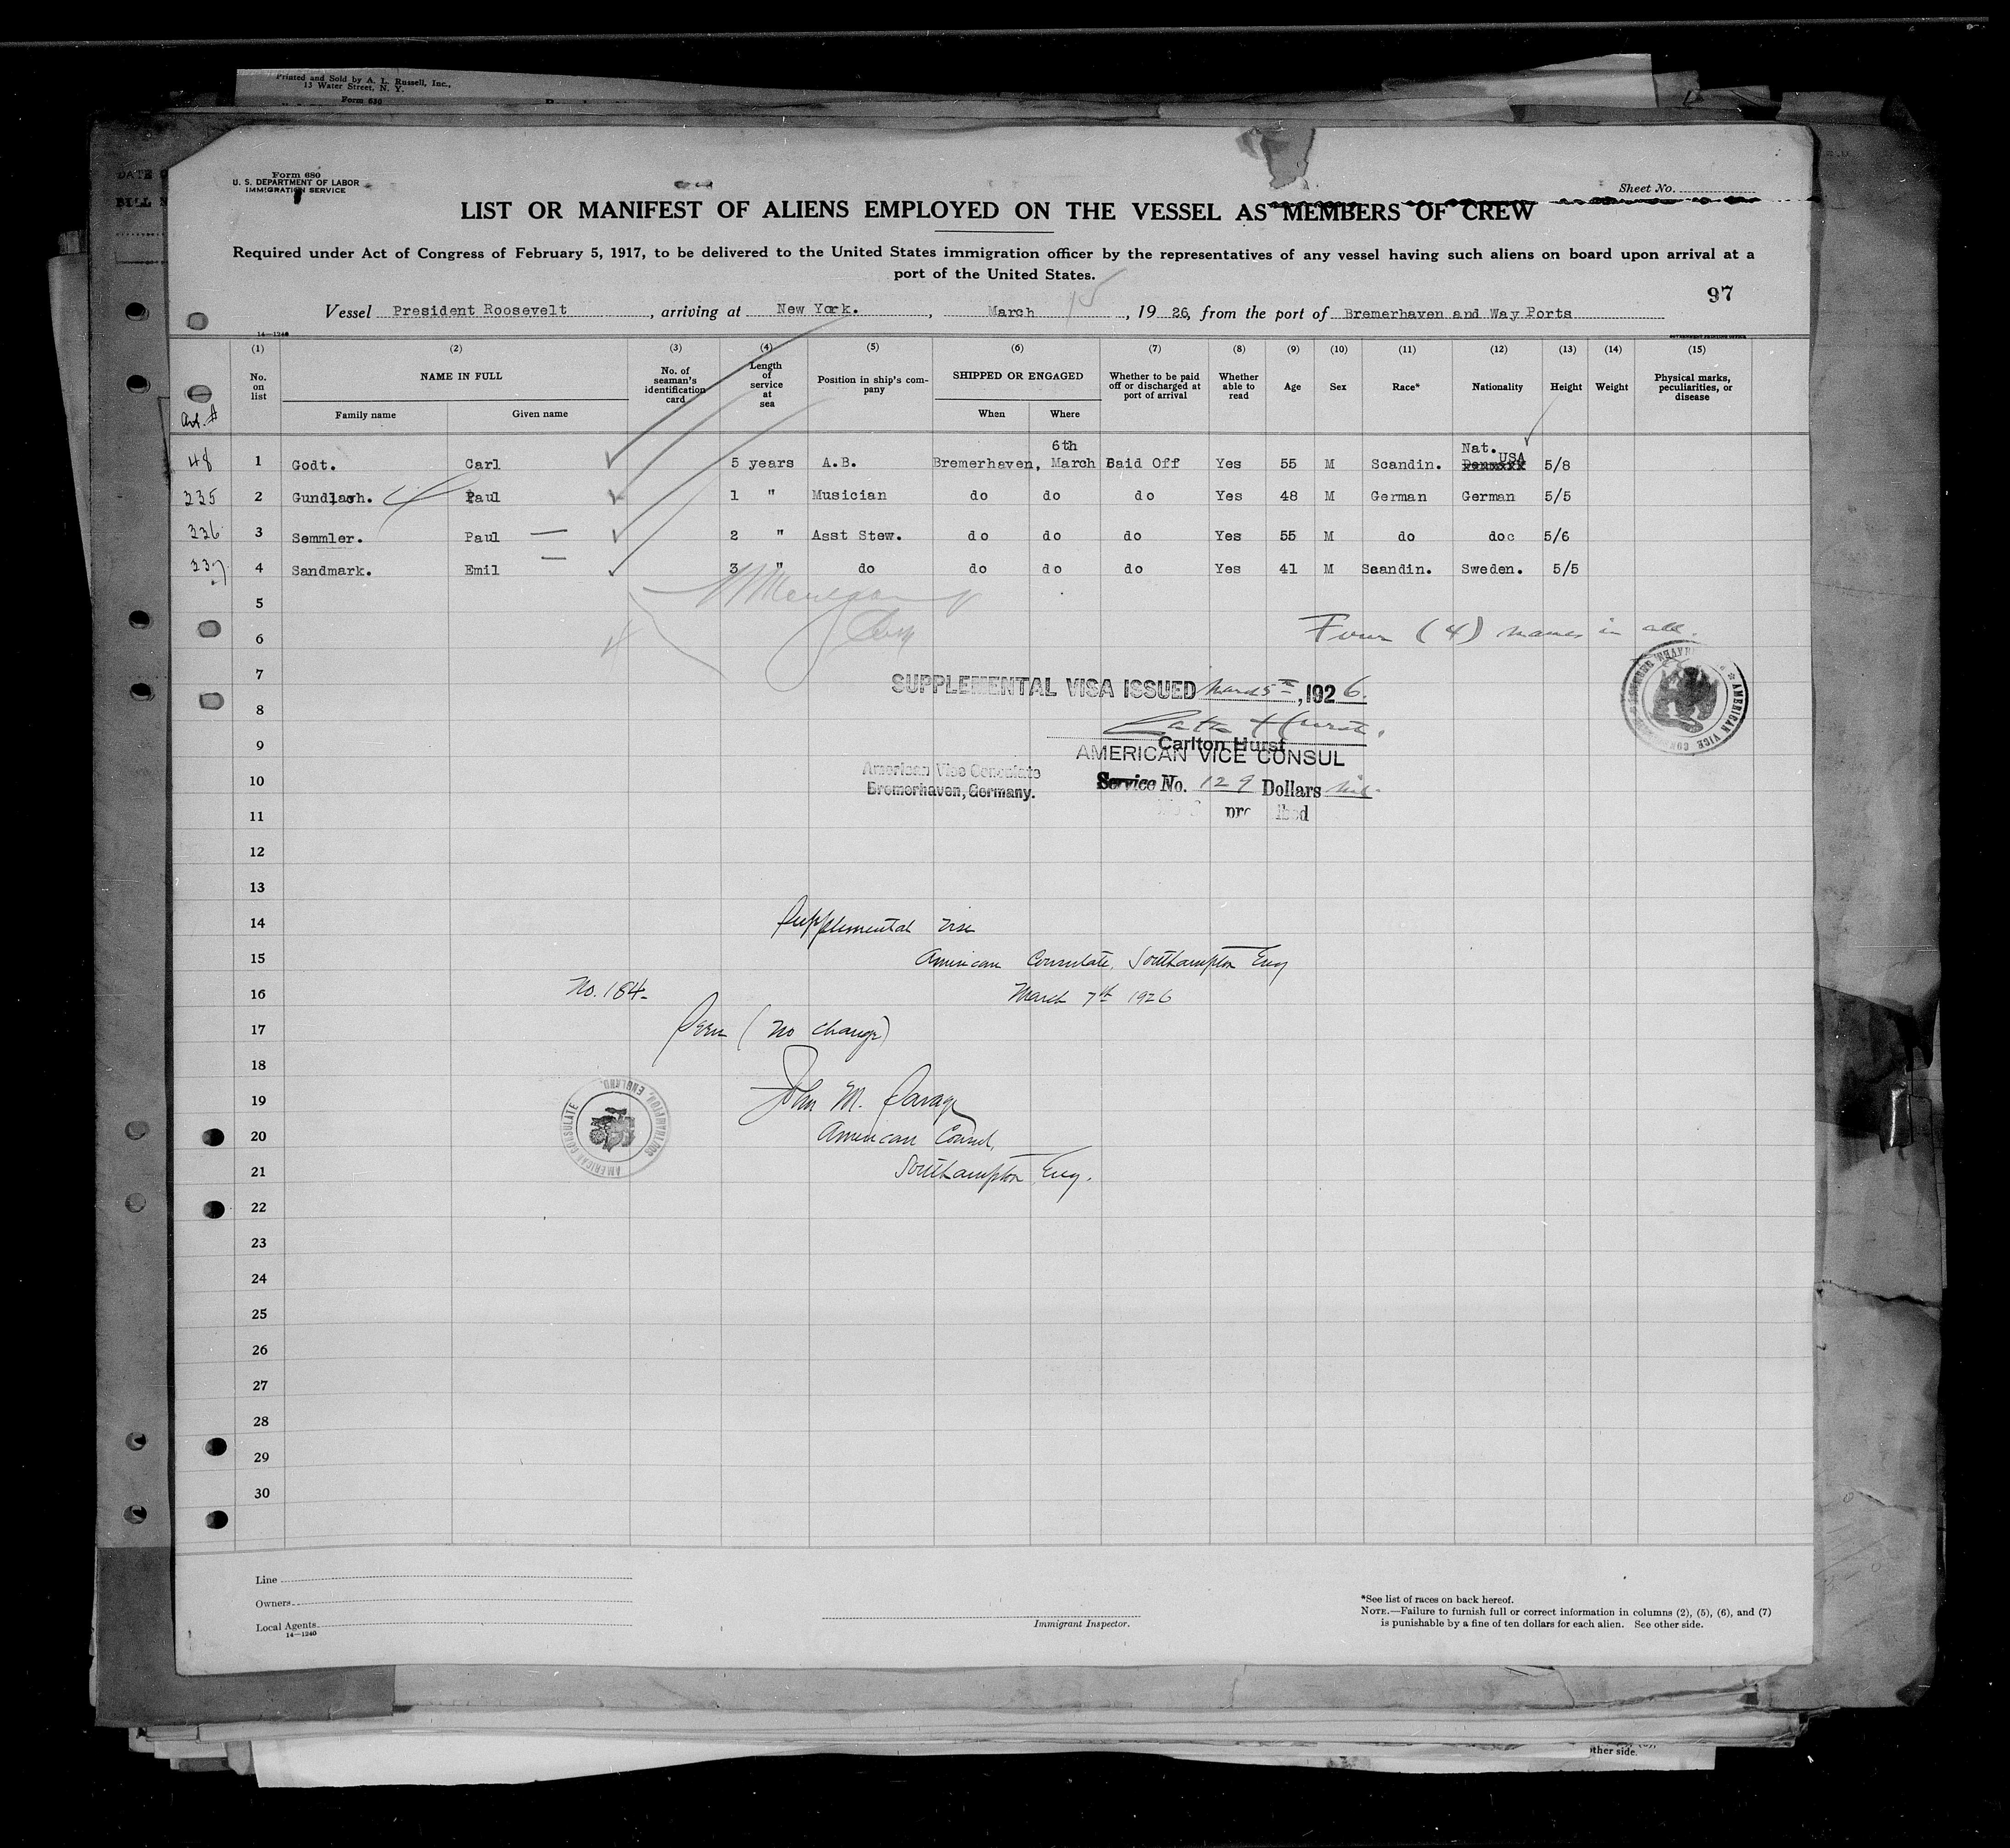 Printed and Sold by A. L. Russell, Inc.,
13 Water Street, N. Y.
Form 630
DATE O
BILL N
Form 680
U. S. DEPARTMENT OF LABOR
IMMIGRATION SERVICE
Sheet No.
LIST OR MANIFEST OF ALIENS EMPLOYED ON THE VESSEL AS MEMBERS OF CREW
Required under Act of Congress of February 5, 1917, to be delivered to the United States immigration officer by the representatives of any vessel having such aliens on board upon arrival at a
port of the United States.
97
Vessel President Roosevelt, arriving at New York., March 15, 1926, from the port of Bremerhaven and Way Ports
14—1240
GOVERNMENT PRINTING OFFICE
(1) (2) (3) (4) (5) (6) (7) (8) (9) (10) (11) (12) (13) (14) (15)
No. on list NAME IN FULL No. of seaman's identification card Length of service at sea Position in ship's company SHIPPED OR ENGAGED Whether to be paid off or discharged at port of arrival Whether able to read Age Sex Race* Nationality Height Weight Physical marks, peculiarities, or disease
Family name Given name When Where
48 1 Godt. Carl 5 years A.B. Bremerhaven, 6th March Paid Off Yes 55 M Scandin. Nat. USA 5/8
235 2 Gundlach. Paul 1 " Musician do do do Yes 48 M German German 5/5
236 3 Semmler. Paul 2 " Asst Stew. do do do Yes 55 M do do 5/6
237 4 Sandmark. Emil 3 " do do do do Yes 41 M Scandin. Sweden. 5/5
5
6 Four (4) names in all.
7 SUPPLEMENTAL VISA ISSUED March 5th, 1926.
8
9 Carlton Hurst
AMERICAN VICE CONSUL
American Vice Consulate
10 Service No. 129 Dollars nil
Bremerhaven, Germany.
11
12
13
14 Supplemental visa
15 American Consulate, Southampton Eng
16 No. 184 March 7th 1926
17 (no change)
18
19 John M. Savage
20 American Consul,
21 Southampton Eng.
AMERICAN CONSULATE SOUTHAMPTON, ENGLAND.
22
23
24
25
26
27
28
29
30
Line
Owners
Local Agents
14—1240
Immigrant Inspector.
*See list of races on back hereof.
NOTE.—Failure to furnish full or correct information in columns (2), (5), (6), and (7)
is punishable by a fine of ten dollars for each alien. See other side.
other side.